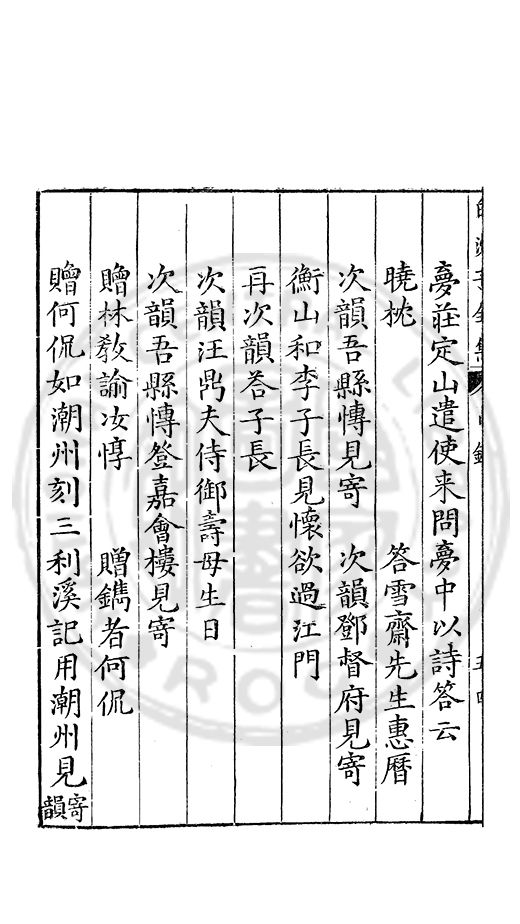 夢莊定山遣使来問夢中以詩答云
曉枕　答雪齋先生惠曆
次韻吾縣慱見寄　次韻鄧督府見寄
衡山和李子長見懷欲過江門
再次韻荅子長
次韻汪鼎夫侍御壽母生日
次韻吾縣慱登嘉會樓見寄
贈林敎諭汝惇　贈鐫者何侃
贈何侃如潮州刻三利溪記用潮州見寄韻